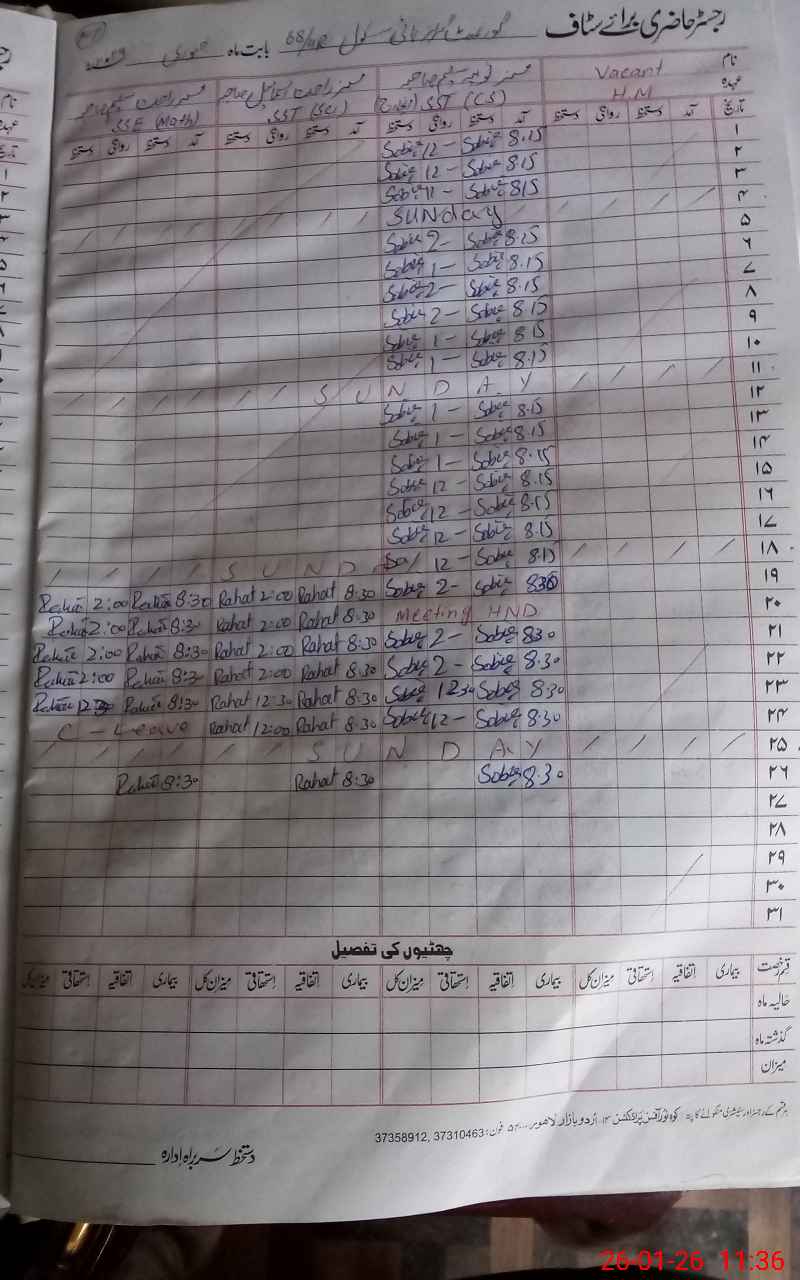 رجسٹر حاضری برائے سٹاف گورنمنٹ گرلز ہائی سکول 68/ بابت ماہ جنوری
نام Vacant
عہدہ H.M SST (CS) SST (Sci) SSE (Math)
تاریخ آمد دستخط روانگی دستخط آمد دستخط روانگی دستخط آمد دستخط روانگی دستخط آمد دستخط روانگی دستخط
۱ 8.15 Sobia 12 - Sobia
۲ 8.15 Sobia 12 - Sobia
۳ 8.15 Sobia 11 - Sobia
۴ SUNday
۵ 8.15 Sobia 2 - Sobia
۶ 8.15 Sobia 1 - Sobia
۷ 8.15 Sobia 2 - Sobia
۸ 8.15 Sobia 2 - Sobia
۹ 8.15 Sobia 1 - Sobia
۱۰ 8.15 Sobia 1 - Sobia
۱۱ SUNDAY
۱۲ 8.15 Sobia 1 - Sobia
۱۳ 8.15 Sobia 1 - Sobia
۱۴ 8.15 Sobia 1 - Sobia
۱۵ 8.15 Sobia 12 - Sobia
۱۶ 8.15 Sobia 12 - Sobia
۱۷ 8.15 Sobia 12 - Sobia
۱۸ 8.15 Sobia 12 - SUND
۱۹ 830 Sobia 2 - Sobia 8:30 Rahat 2:00 Rahat 8:30 Rahat 2:00 Rahat
۲۰ Meeting HND 8:30 Rahat 2:00 Rahat 8:30 Rahat 2:00 Rahat
۲۱ 830 Sobia 2 - Sobia 8:30 Rahat 2:00 Rahat 8:30 Rahat 2:00 Rahat
۲۲ 8.30 Sobia 2 - Sobia 8.30 Rahat 2:00 Rahat 8:30 Rahat 2:00 Rahat
۲۳ 8.30 Sobia 12.30 Sobia 8.30 Rahat 12.30 Rahat 8:30 Rahat 12:30 Rahat
۲۴ 8.30 Sobia 12 - Sobia 8.30 Rahat 12:00 Rahat C - Leave
۲۵ SUNDAY
۲۶ 8.30 Sobia 8:30 Rahat 8:30 Rahat
۲۷
۲۸
۲۹
۳۰
۳۱
چھٹیوں کی تفصیل
قسم رخصت بیماری اتفاقیہ استحقاقی میزان کل بیماری اتفاقیہ استحقاقی میزان کل بیماری اتفاقیہ استحقاقی میزان کل بیماری اتفاقیہ استحقاقی میزان کل
حالیہ ماہ
گذشتہ ماہ
میزان
ہر قسم کے رجسٹر اور سٹیشنری منگوانے کا پتہ: کوہ نور آفس پراڈکٹس ۱۴، اردو بازار لاہور ۵۴۰۰۰ فون: 37310463 ,37358912
دستخط سربراہ ادارہ
26-01-26 11:36